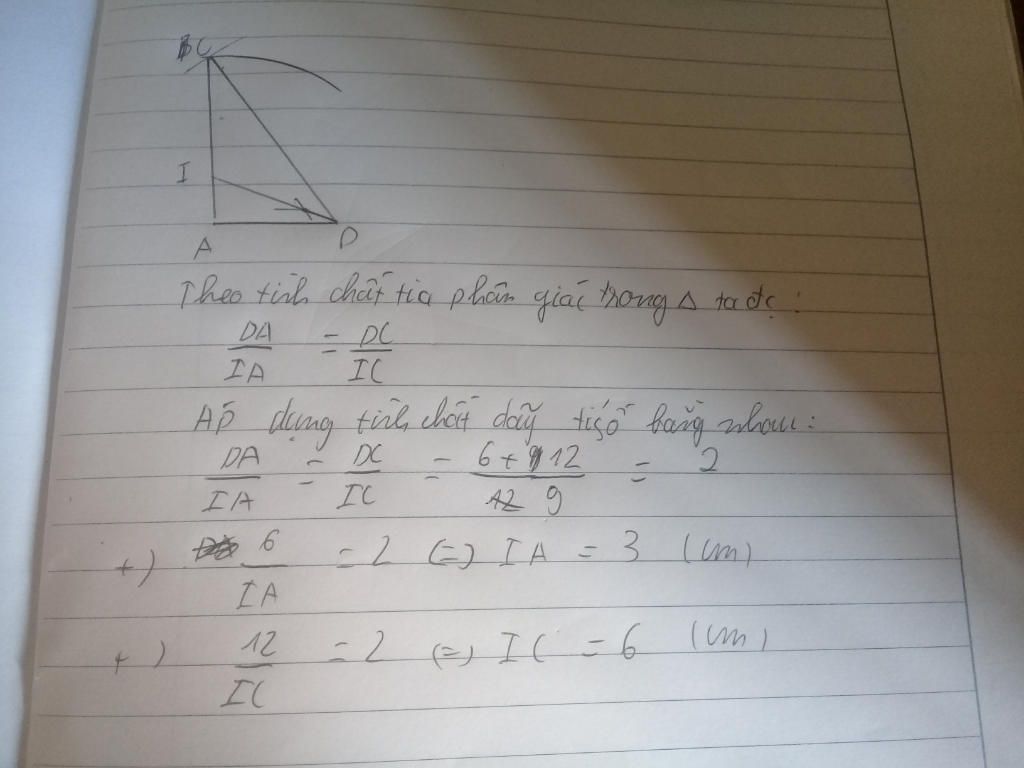 BC
I
A
D
Theo tính chất tia phân giác trong Δ ta đc :
DA/IA = DC/IC
Áp dụng tính chất dãy tỉ số bằng nhau :
DA/IA = DC/IC = 6 + 12/9 = 2
+) 6/IA = 2 (=) IA = 3 (cm)
+) 12/IC = 2 (=) IC = 6 (cm)